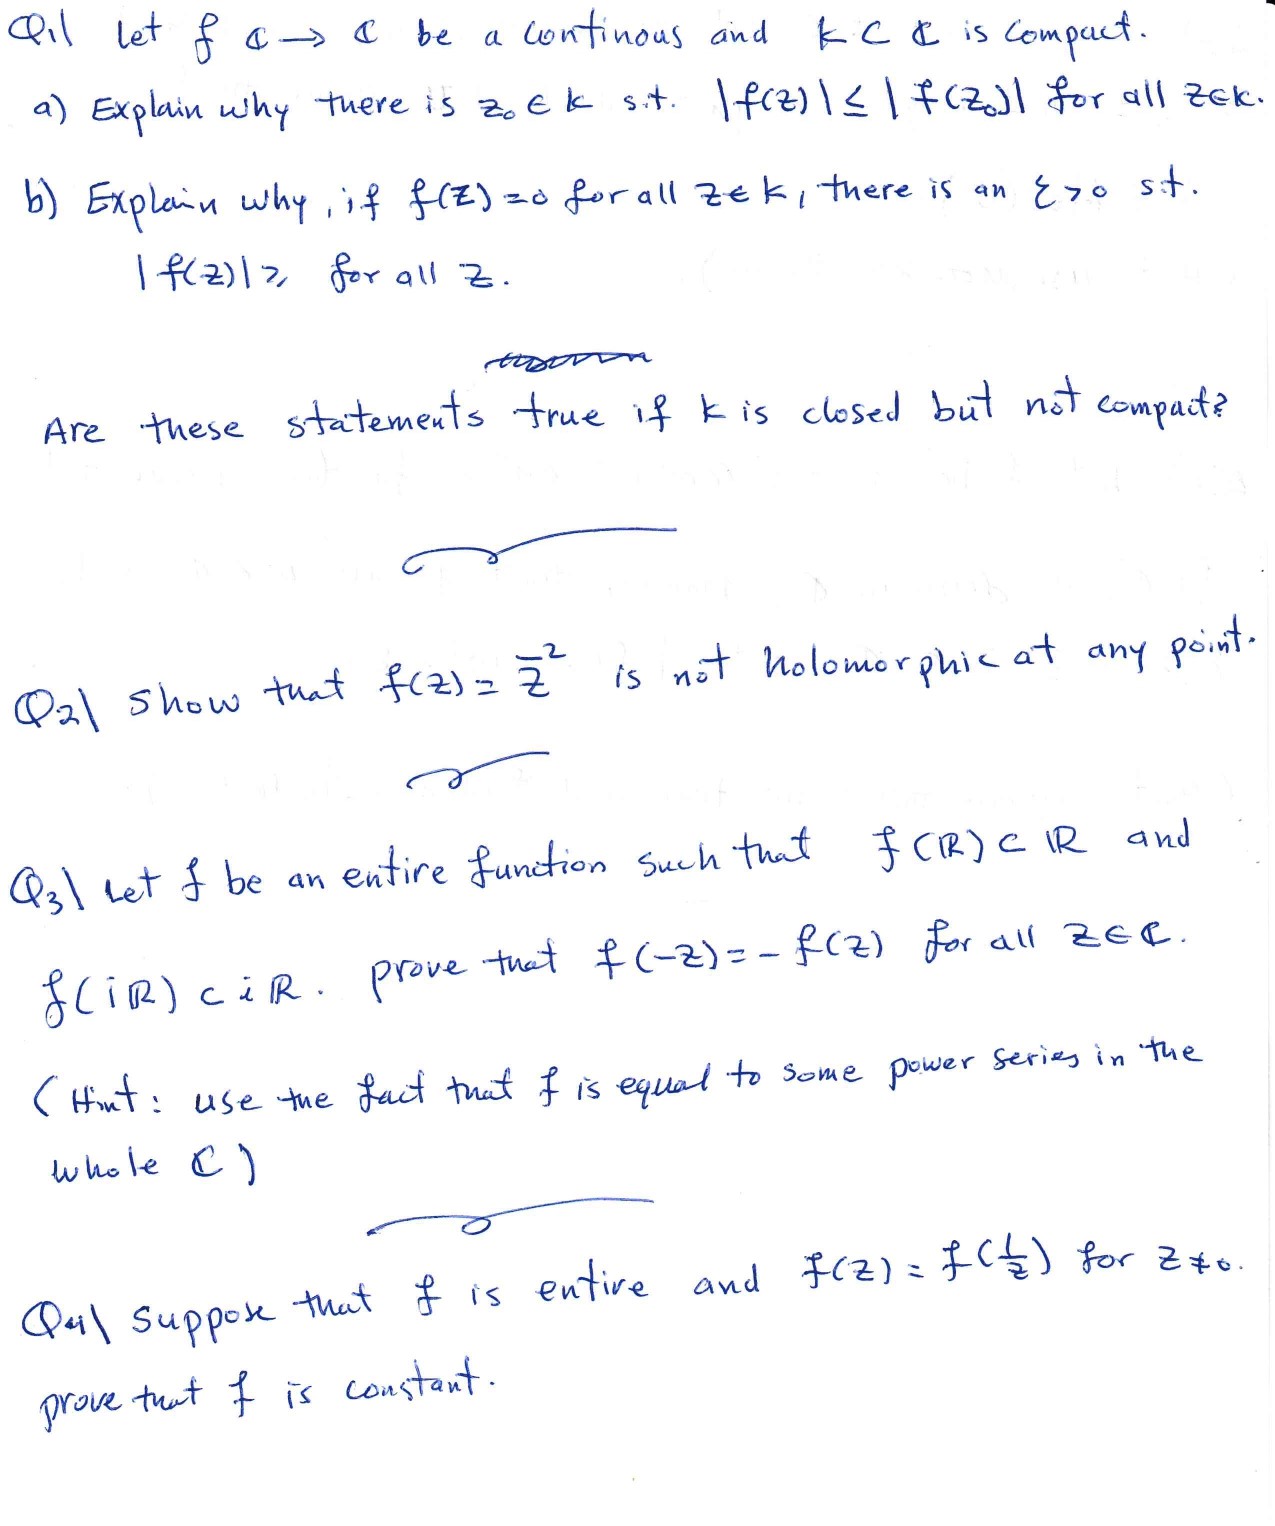 Q1\ Let f ℂ → ℂ be a continous and K ⊂ ℂ is compact.
a) Explain why there is z₀ ∈ K s.t. |f(z)| ≤ |f(z₀)| for all z∈K.
b) Explain why, if f(z) = 0 for all z∈K, there is an ε>0 s.t.
|f(z)| ≥ for all z.
Are these statements true if K is closed but not compact?
Q2\ Show that f(z) = z̄² is not holomorphic at any point.
Q3\ Let f be an entire function such that f(ℝ) ⊂ ℝ and
f(iℝ) ⊂ iℝ. prove that f(-z) = -f(z) for all z∈ℂ.
(Hint: use the fact that f is equal to some power series in the
whole ℂ)
Q4\ Suppose that f is entire and f(z) = f(1/z) for z≠0.
prove that f is constant.